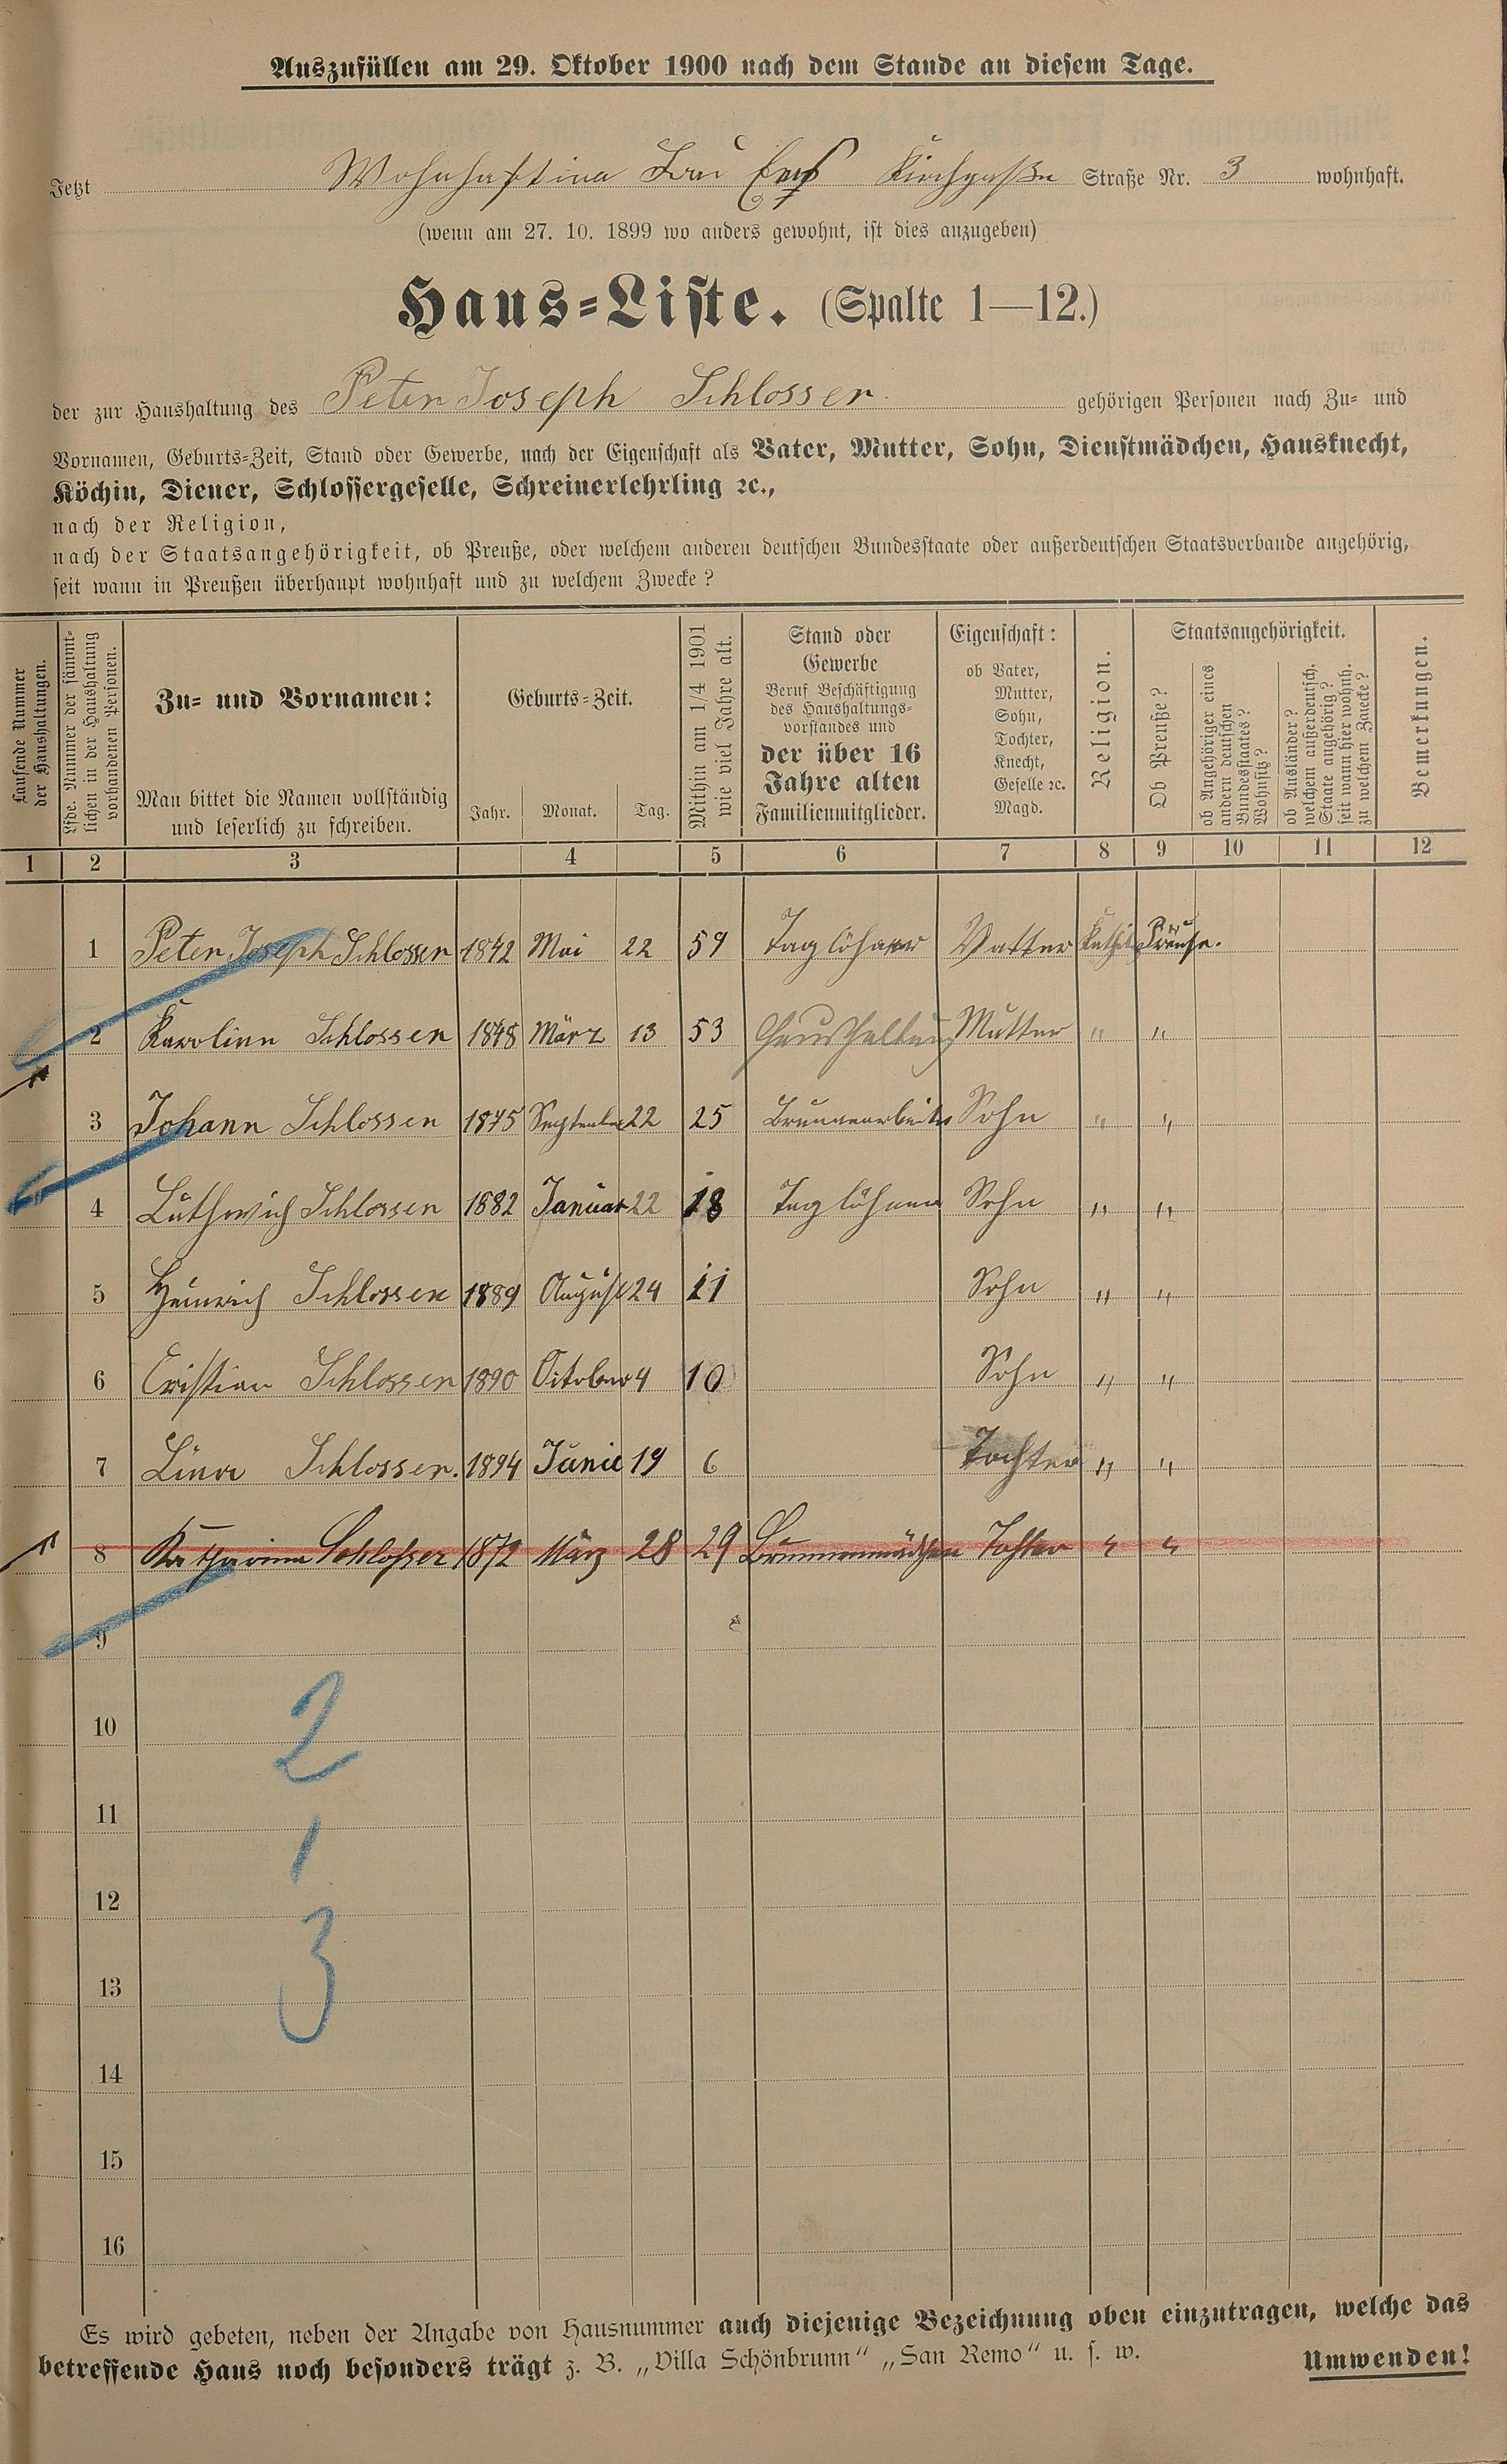 Auszufüllen am 29. Oktober 1900 nach dem Stande an diesem Tage.
Jetzt Bad Ems Kirchgaße Straße Nr. 3 wohnhaft.
(wenn am 27. 10. 1899 wo anders gewohnt, ist dies anzugeben)
Haus-Liste. (Spalte 1—12.)
der zur Haushaltung des Peter Joseph Schlosser gehörigen Personen nach Zu- und
Vornamen, Geburts-Zeit, Stand oder Gewerbe, nach der Eigenschaft als Vater, Mutter, Sohn, Dienstmädchen, Hausknecht,
Köchin, Diener, Schlossergeselle, Schreinerlehrling ꝛc.,
nach der Religion,
nach der Staatsangehörigkeit, ob Preuße, oder welchem anderen deutschen Bundesstaate oder außerdeutschen Staatsverbande angehörig,
seit wann in Preußen überhaupt wohnhaft und zu welchem Zwecke?
Laufende Nummer
der Haushaltungen.
Lfde. Nummer der sämmt-
lichen in der Haushaltung
vorhandenen Personen.
Zu- und Vornamen:
Man bittet die Namen vollständig
und leserlich zu schreiben.
Geburts-Zeit.
Jahr. Monat. Tag.
Mithin am 1/4 1901
wie viel Jahre alt.
Stand oder
Gewerbe
Beruf Beschäftigung
des Haushaltungs-
vorstandes und
der über 16
Jahre alten
Familienmitglieder.
Eigenschaft:
ob Vater,
Mutter,
Sohn,
Tochter,
Knecht,
Geselle ꝛc.
Magd.
Religion.
Staatsangehörigkeit.
Ob Preuße?
ob Angehöriger eines
andern deutschen
Bundesstaates?
Wohnsitz?
ob Ausländer?
welchem außerdeutsch.
Staate angehörig?
seit wann hier wohnh.
zu welchem Zwecke?
Bemerkungen.
1 2 3 4 5 6 7 8 9 10 11 12
1 Peter Joseph Schlosser 1842 Mai 22 59 Taglöhner Vatter Kathol. Preuße.
2 Karolina Schlosser 1848 März 13 53 Haushaltung Mutter " "
3 Johann Schlosser 1875 September 22 25 Brunnenarbeiter Sohn " "
4 Luthwich Schlosser 1882 Januar 22 18 Taglöhner Sohn " "
5 Heinrich Schlosser 1889 August 24 11 Sohn " "
6 Cristian Schlosser 1890 Oitober 4 10 Sohn " "
7 Lina Schlosser. 1894 Junie 19 6 Tochter " "
8 Katharina Schlosser 1872 März 28 29 Brunnenmädchen Tochter " "
9
2
10
11
1
12
3
13
14
15
16
Es wird gebeten, neben der Angabe von Hausnummer auch diejenige Bezeichnung oben einzutragen, welche das
betreffende Haus noch besonders trägt z. B. „Villa Schönbrunn" „San Remo" u. s. w.
Umwenden!